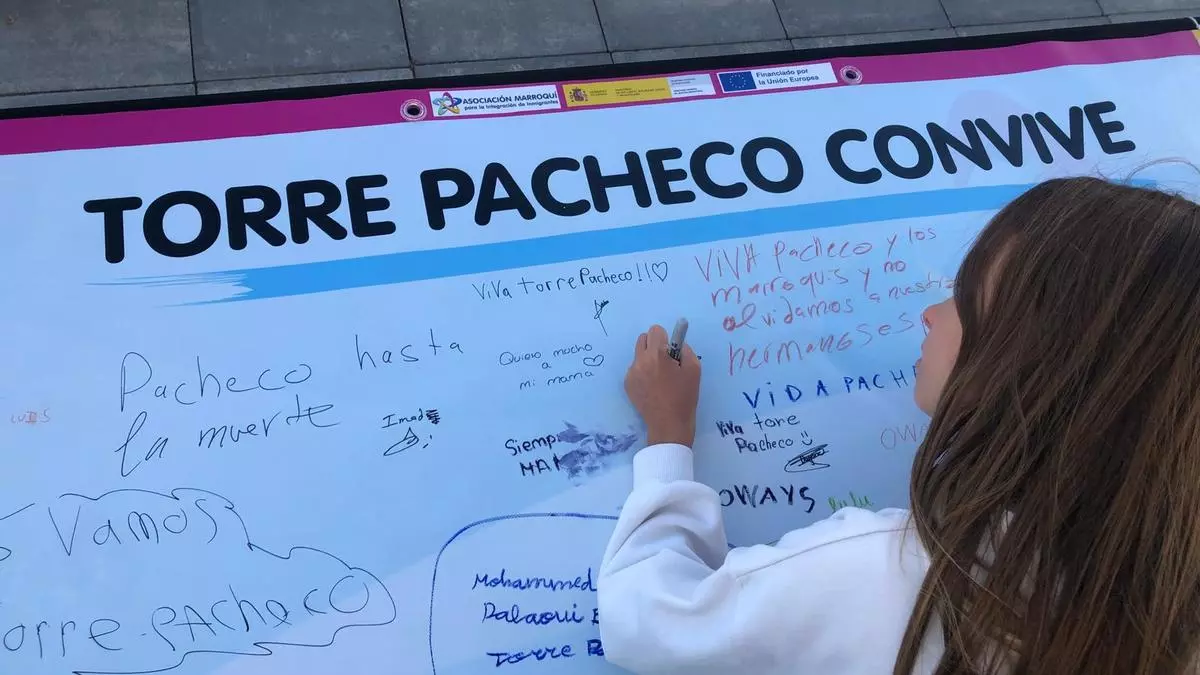 ASOCIACIÓN MARROQUÍ
para la Integración de Inmigrantes
Financiado por
la Unión Europea
TORRE PACHECO CONVIVE
Viva torre Pacheco!!♡
ViVA Pacheco y los
marroquis y no
olvidamos a nuestra
hermanoses
Pacheco hasta
la muerte
Quiero mucho
a
mi mama ♡
Imad
Siemp
MA
ViDA PACHE
Viva tore
Pacheco
OWA
OWAYS
Vamos
orre-PACheco
Mohammed
Dalaoui
torre